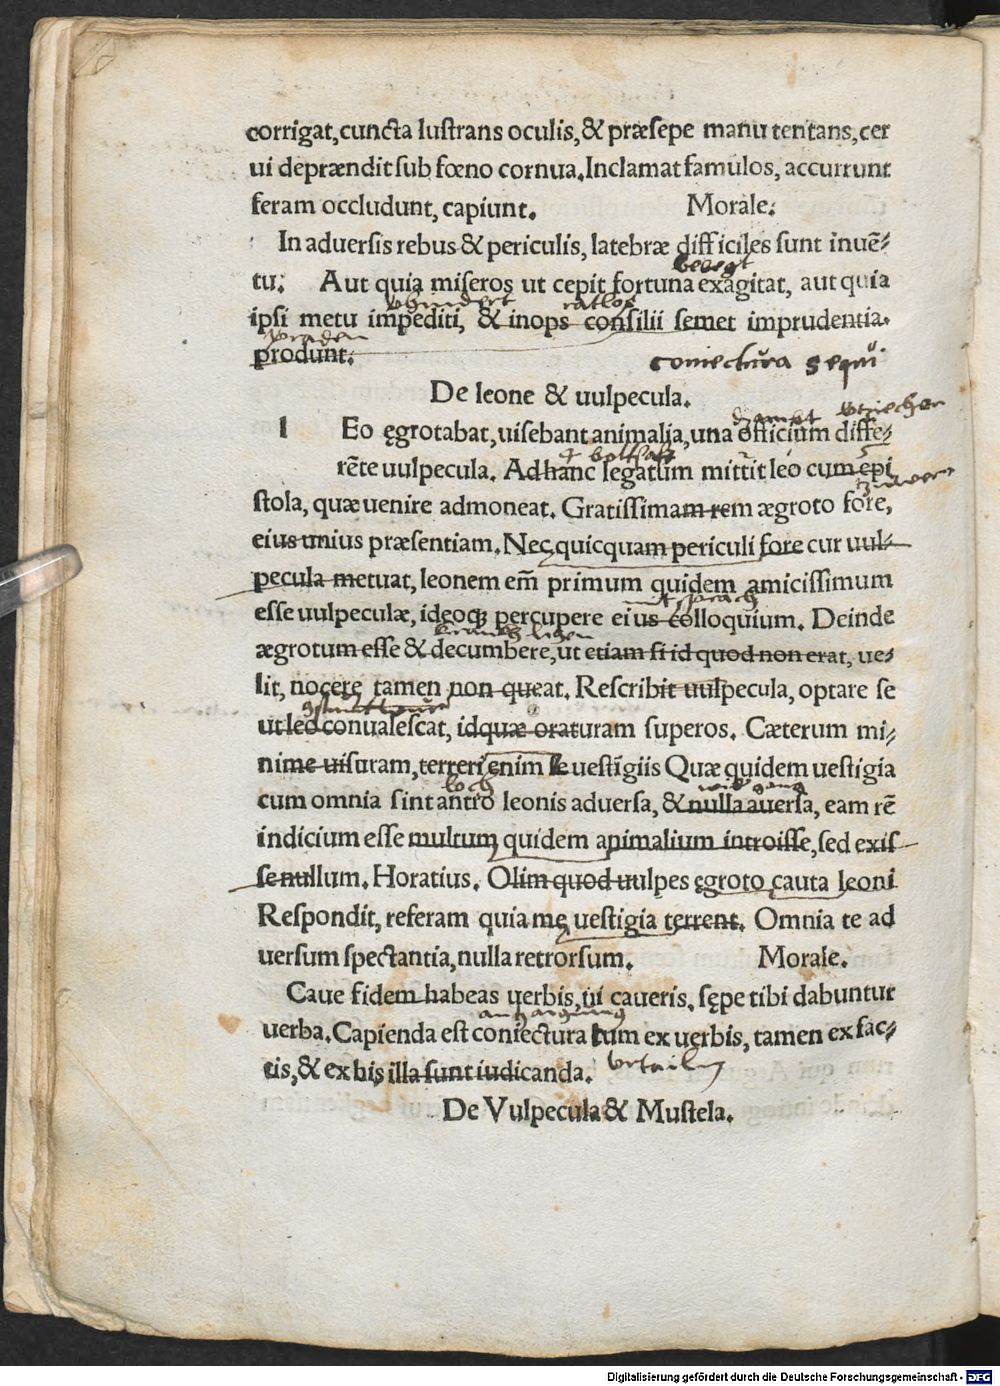 corrigat, cuncta lustrans oculis, & præsepe manu tentans, cer
ui depræendit sub fœno cornua. Inclamat famulos, accurrunt
feram occludunt, capiunt. Morale.
In aduersis rebus & periculis, latebræ difficiles sunt inuē-
bewegt
tu. Aut quia miseros ut cepit fortuna exagitat, aut quia
ratlos
ipsi metu impediti, & inops consilii semet imprudentia
produnt.
coniectura sequi
De leone & uulpecula.
l Eo ęgrotabat, uisebant animalia, una officium diffe-
rēte uulpecula. Ad hanc legatum mittit leo cum epi
stola, quæ uenire admoneat. Gratissimam rem ægroto fore,
eius unius præsentiam. Nec quicquam periculi fore cur uul-
pecula metuat, leonem em̄ primum quidem amicissimum
esse uulpeculæ, ideoq; percupere eius colloquium. Deinde
ægrotum esse & decumbere, ut etiam si id quod non erat, ue-
lit, nocere tamen non queat. Rescribit uulpecula, optare se
ut leo conualescat, idquæ oraturam superos. Cæterum mi-
nime uisuram, terreri enim se uestigiis Quæ quidem uestigia
loch
cum omnia sint antro leonis aduersa, & nulla auersa, eam rē
indicium esse multum quidem animalium introisse, sed exis
se nullum. Horatius. Olim quod uulpes ęgroto cauta leoni
Respondit, referam quia me uestigia terrent. Omnia te ad
uersum spectantia, nulla retrorsum. Morale.
Caue fidem habeas uerbis, ni caueris. sępe tibi dabuntur
uerba. Capienda est coniectura tum ex uerbis, tamen ex fac-
tis, & ex his illa sunt iudicanda.
De Vulpecula & Mustela.
Digitalisierung gefördert durch die Deutsche Forschungsgemeinschaft - DFG